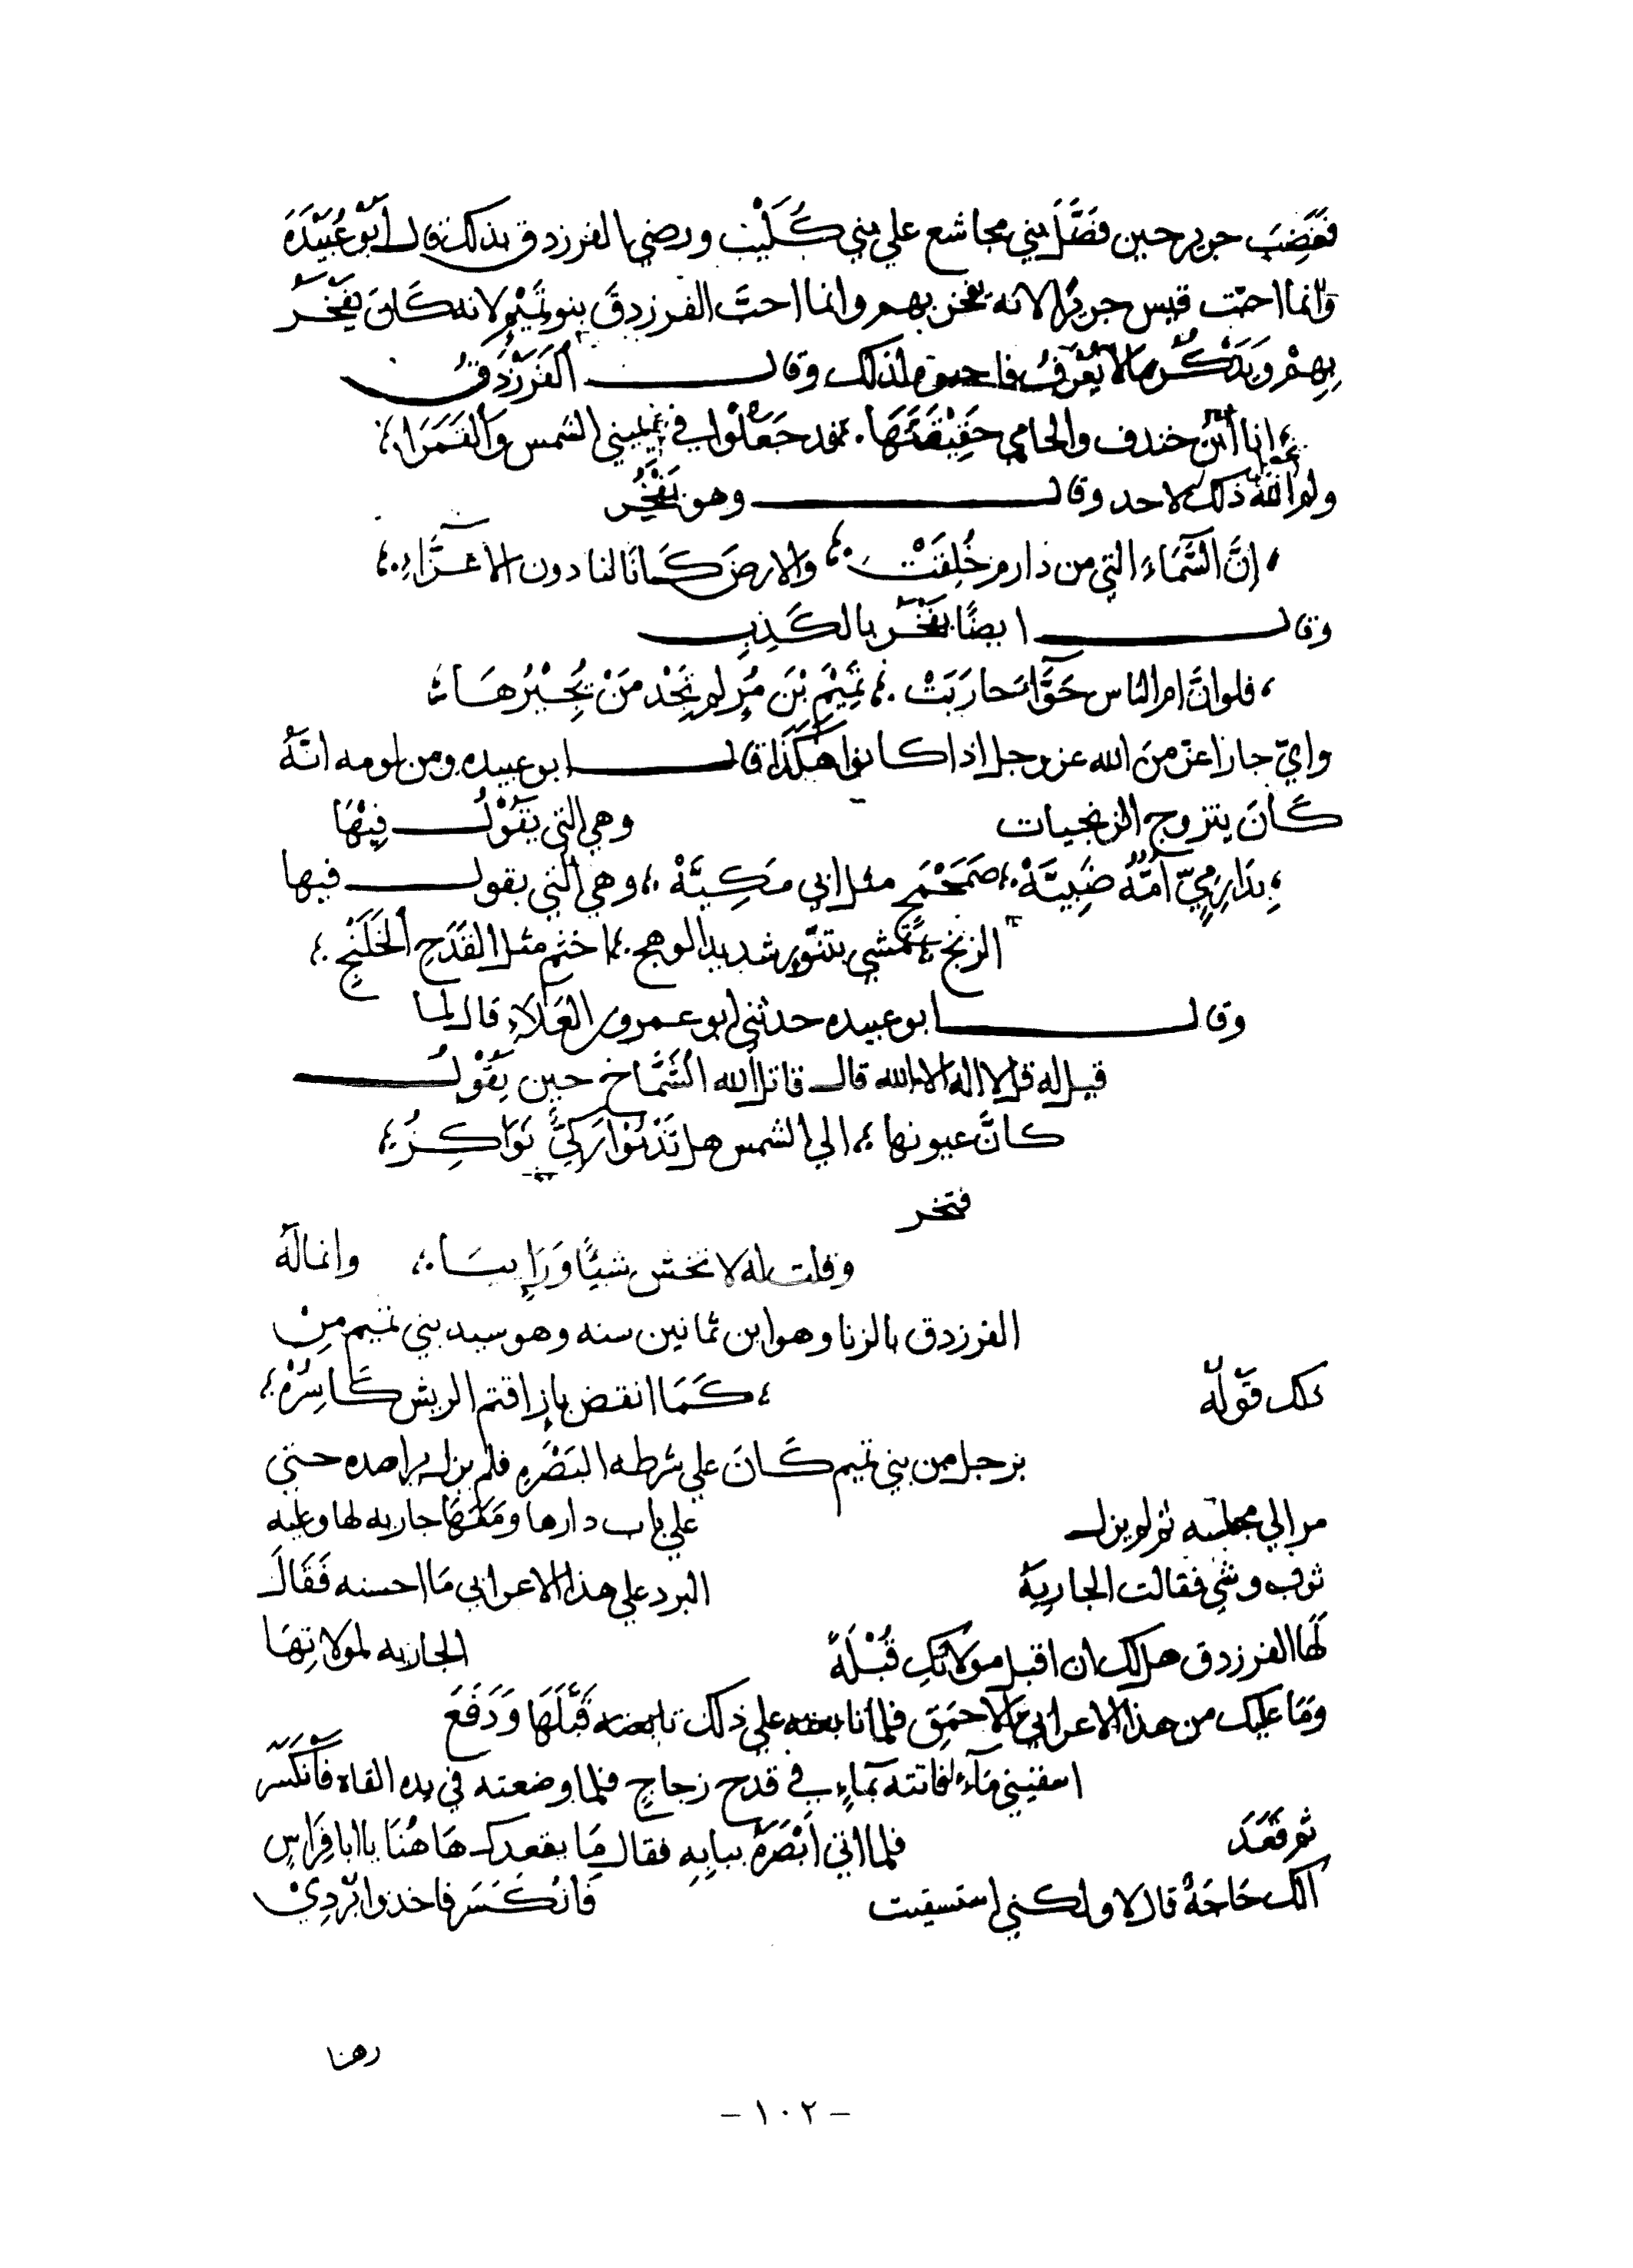 فَغَضِبَ جرير حين فضَّلَ بني مجاشع علي بني كُلَيْب ورضي الفرزدق بذلك قال أبُو عُبَيْدَةَ
وانما احبّت قيس جريرًا لانه يفخر بهم وانما احبَّ الفرزدقَ بنو تَميْم لانه كَانَ يفخَر
بِهِمْ وَيَذكُر ما لا يُعْرَفُ فاحبوه لذلك وقال الفَرَزْدَقُ
انا ابْنُ خندف والحامي حَقِيْقَتَهَا ؛ قد جَعَلُوا في يميني الشمس وَالقَمَرَا ؛
ولم الله ذلك لاحد وقال وهو يَفْخَرُ
؛ إنَّ السَّمَاءَ التي من دارم خُلِقَتْ ؛ والارضَ كَانَا لنا دون الاعزَّاءِ ؛
وقال ايضًا يَفْخَر بالكَذِبِ
؛ فلو انَّ ام الناس حَوَّاءَ حارَبَتْ ؛ تَمِيْمَ بْنَ مُرٍ لم تَجْد مَنْ يُجِيْرُهَا ؛
وايّ جار اعز منَ الله عز وجل اذا كانوا هكَذَا قال ابو عبيده ومن لومه انَّهُ
كَانَ يتزوج الزنجيات وهي التي يَقُوْلُ فِيْهَا
؛ بِدَارِمِيّ اُمُّهُ ضَبِيَّةْ ؛ صَمَحْمَحٍ مثل ابي مَكِيَّةْ ؛ وهي التي يقول فيها
الزنج تمشي بتنّورٍ شديد الوهج ؛ اخثم مثل القَدَحِ الخَلَنْجِ ؛
وقال ابو عبيده حدثني ابو عمرو بن العَلَاءِ قال لما
قيل له قل لا اله الا الله قال قاتل الله الشَّمَّاخ حين يَقُوْلُ
كانَّ عيونها ؛ الي الشمس هل تَدْنُوْا رَكيٌّ نَوَاكِزُ ؛
فتخر
وقلت له لا تخش شيئًا وَرَايِيَا ؛ وانما لَهُ
الفرزدق بالزنا وهو ابن ثمانين سنه وهو سيد بني تميم مِنْ
ذلك قَوله ؛ كَمَا انقض بازٍ اقتم الريش كَاسِرُهْ ؛
برجل من بني تميم كَانَ علي شرطه البَصْرَهِ فلم يزل يراصده حتي
مر الي مجلسه ثم لم يزل علي باب دارها ومَعَهَا جاريه لها وعليه
ثوب وشي فقالت الجاريَةُ البرد علي هذا الاعرابي مَا احسنه فَقَالَ
لَهَا الفرزدق هل لك ان اقبل مولاتَكِ قُبْلَةً الجاريه لمولاتِهَا
وَمَا عليك من هذا الاعرابي الاحمَق فلما تابعته علي ذلك قَبَّلَهَا وَدَفَعَ
اسقيني مَاءً فاتته بمَاءٍ في قدح زجاجٍ فلما وضعته في يده القاه فَانْكَسَرَ
ثم قَعَدَ فلما اتي اَبْصَرَهُ ببابِهِ فقال مَا يقعدك هَا هُنَا يا ابا فِرَاسٍ
الك حَاجَةٌ قال لا ولكني استسقيت فَانْكَسَر فاخذوا بُرْدِيْ
رهنا
- ١٠٢ -